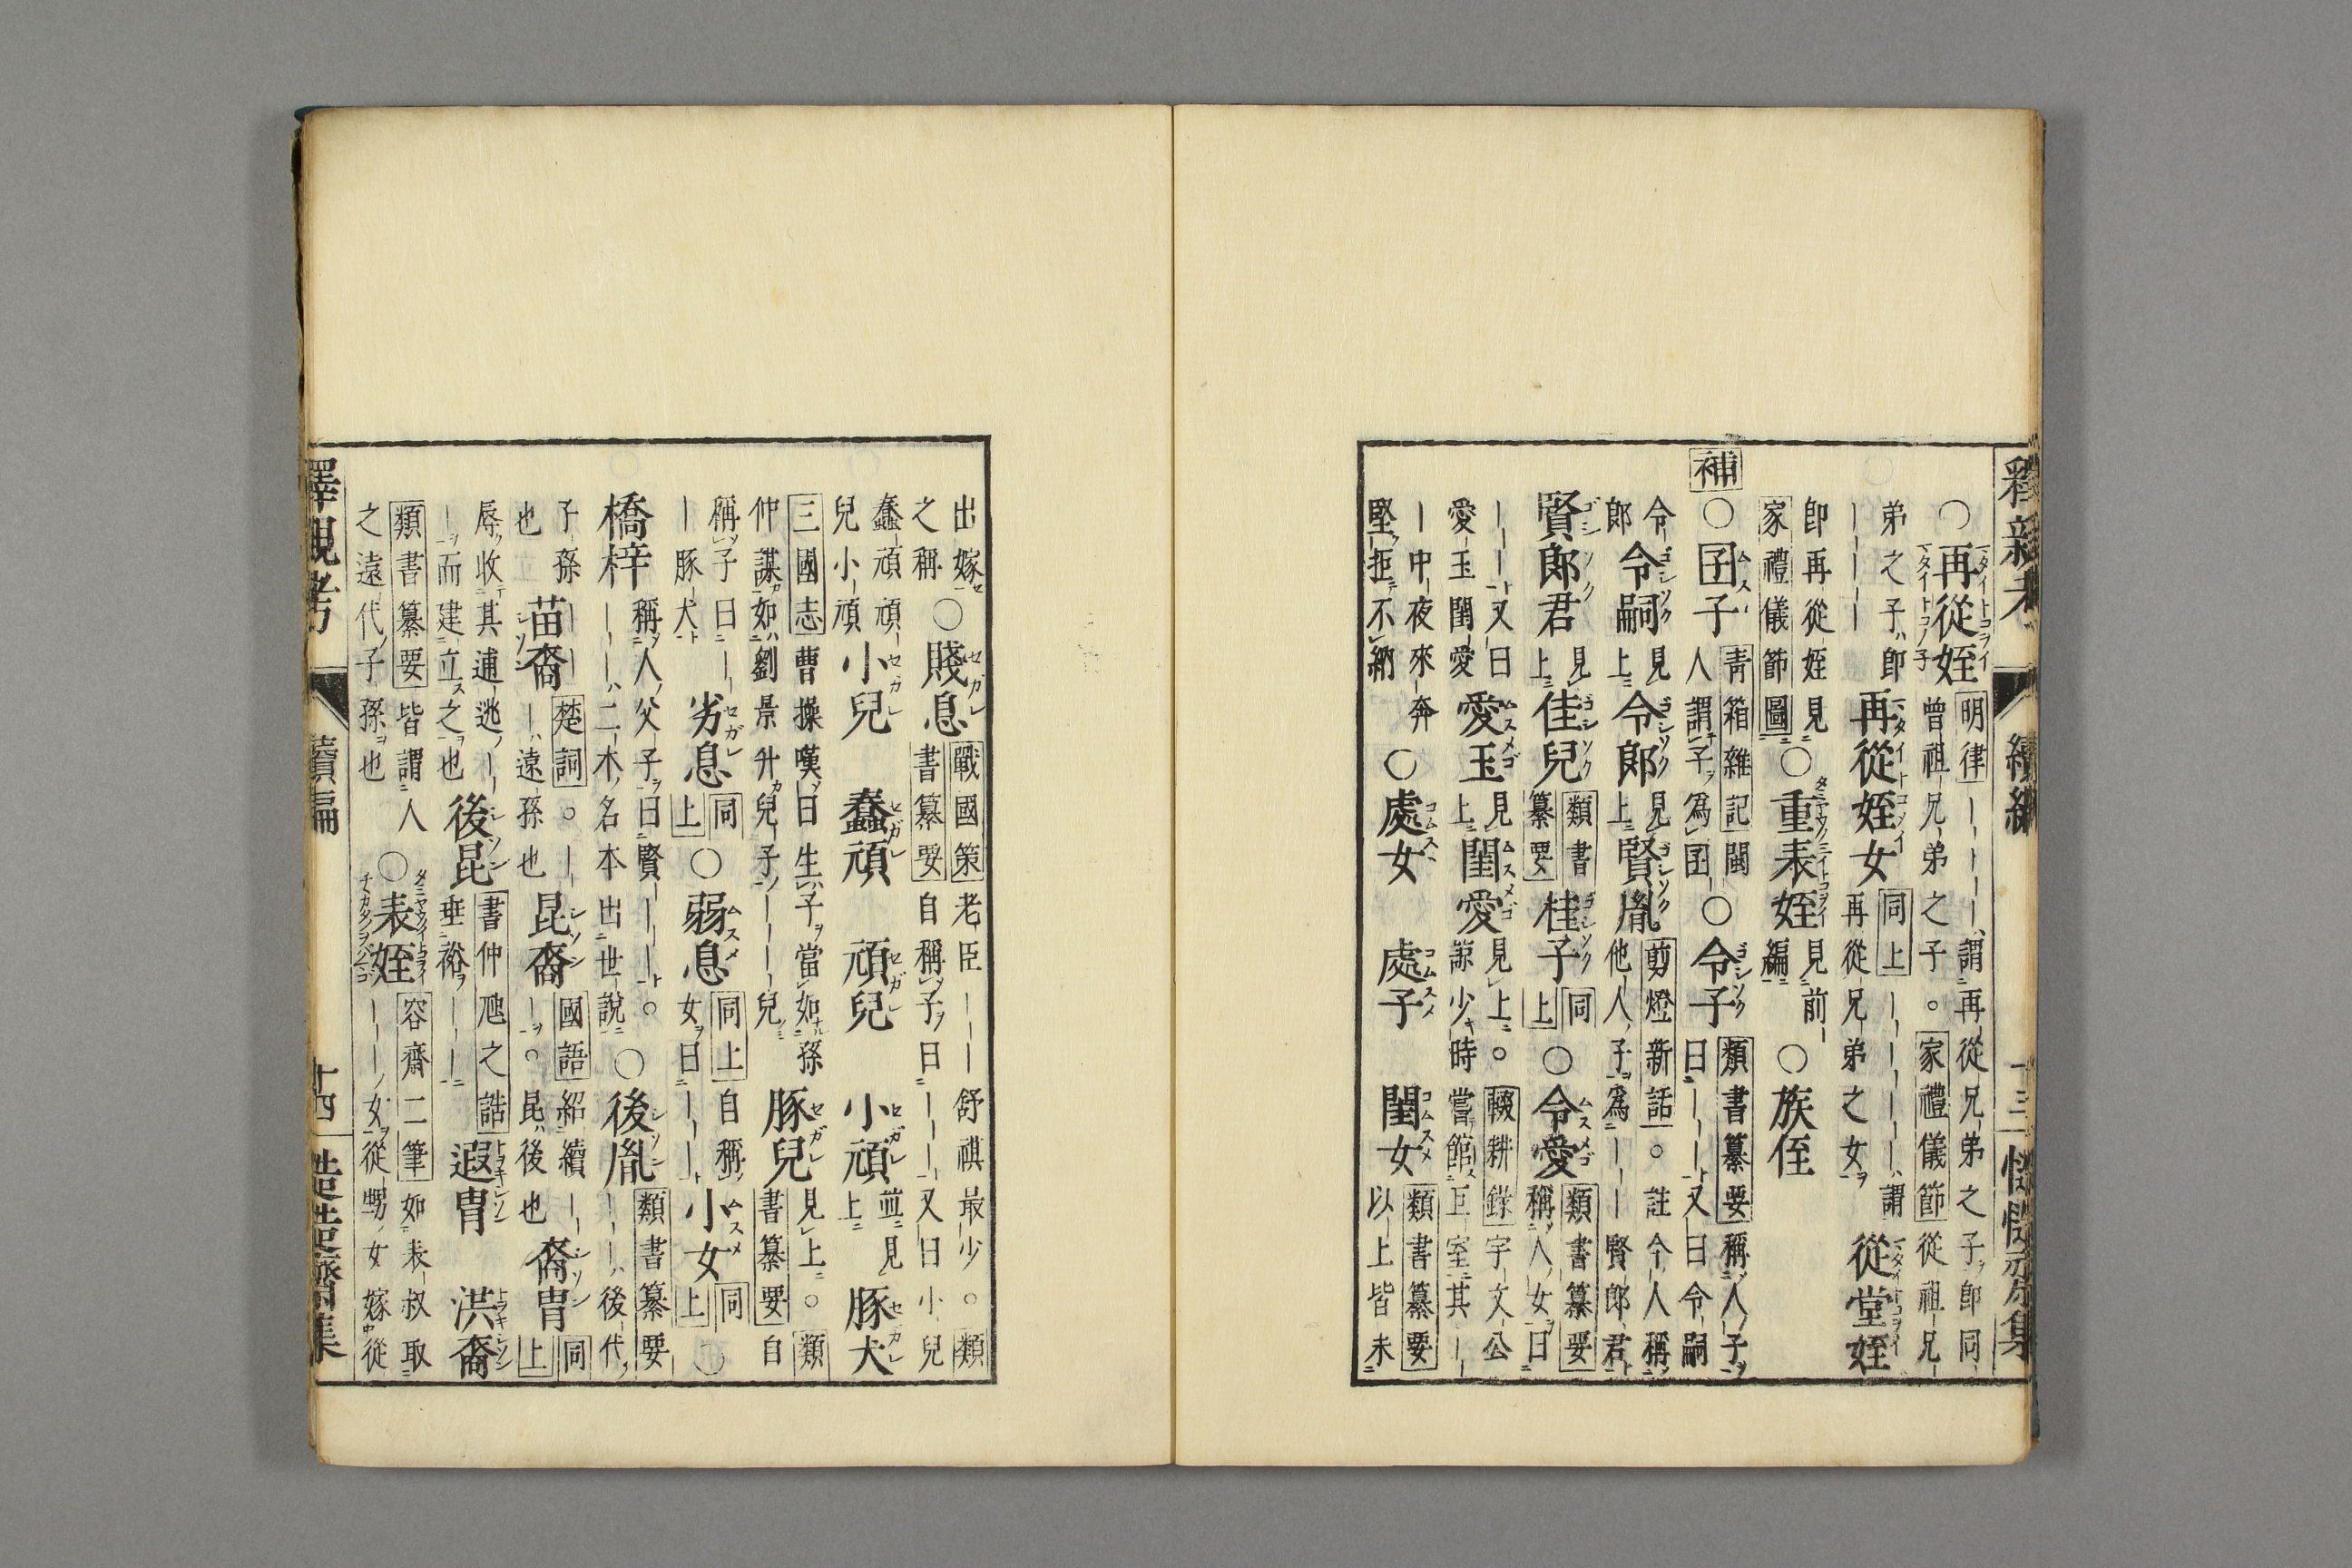 釋親考 續編 十三
○再從姪 明律————謂再從兄弟之子即同曾祖兄弟之子。家禮儀節從祖兄
弟之子即————再從姪女 同上————謂再從兄弟之女 從堂姪
即再從姪見家禮儀節圖 ○重表姪 見前編 ○族侄
補 ○囝子 青箱雜記閩人謂子為囝 ○令子 類書纂要稱人子曰——又曰令嗣
令郎 令嗣 見上 令郎 見上 賢胤 剪燈新話。註今人稱他人子為——賢郎君
賢郎君 見上 佳兒 類書纂要 桂子 同上 ○令愛 類書纂要稱人女曰
——又曰愛玉閨愛 愛玉 見上 閨愛 見上。輟耕錄宇文公諒少時嘗館巨室其—
—中夜來奔堅拒不納 ○處女 處子 閨女 類書纂要以上皆未
出嫁之稱 ○賤息 戰國策老臣——舒祺最少。類書纂要自稱子曰——又曰小兒
蠢頑頑兒小頑 小兒 蠢頑 頑兒 小頑 並見上 豚犬
三國志曹操嘆曰生子當如孫仲謀如劉景升兒子———兒 豚兒 見上。類書纂要自
稱子曰——豚犬 劣息 同上 ○弱息 同上自稱女曰—— 小女 同上 ○
橋梓 稱人父子曰賢——。——二木名本出世說 ○後胤 類書纂要——後代
子孫也 苗裔 楚詞。——遠孫也 昆裔 國語紹續——。昆後也 裔冑 同上
辱收其逋逃———而建立之也 後昆 書仲虺之誥垂裕—— 遐冑 洪裔
類書纂要皆謂人之遠代子孫也 ○表姪 容齋二筆如表叔取——女從甥女嫁從
釋親考 續編 十四